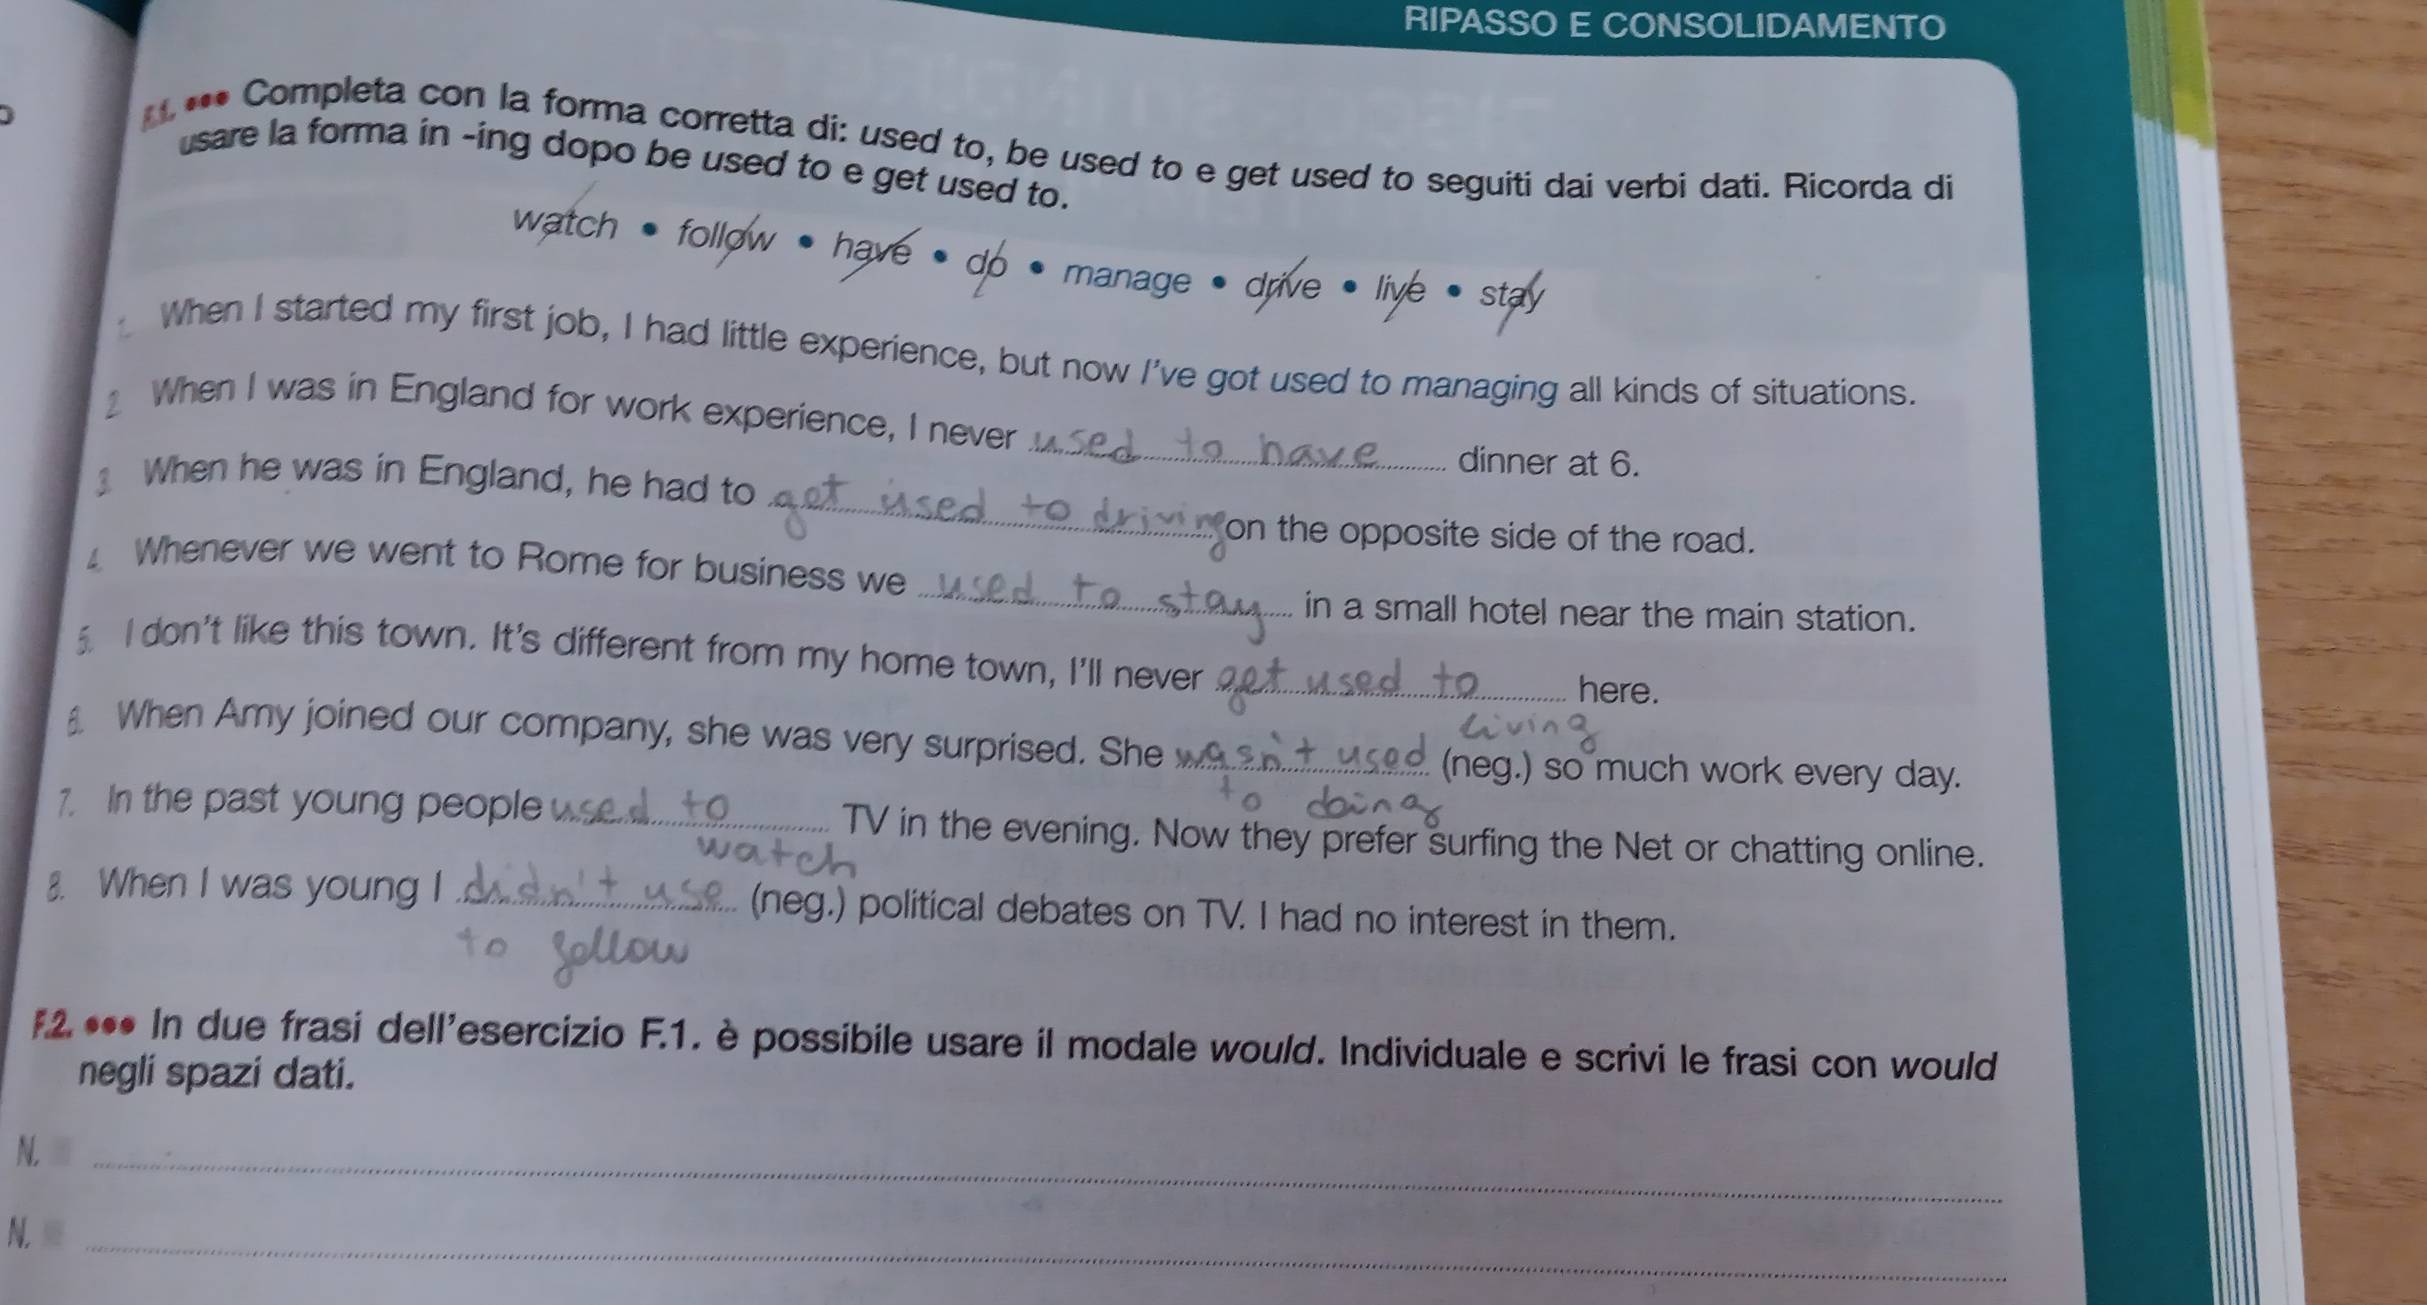 RIPASSO E CONSOLIDAMENTO
F.1. ••• Completa con la forma corretta di: used to, be used to e get used to seguiti dai verbi dati. Ricorda di
usare la forma in -ing dopo be used to e get used to.
watch • follow • have • do • manage • drive • live • stay
When I started my first job, I had little experience, but now I've got used to managing all kinds of situations.
2 When I was in England for work experience, I never used to have dinner at 6.
3 When he was in England, he had to get used to driving on the opposite side of the road.
4. Whenever we went to Rome for business we used to stay in a small hotel near the main station.
5. I don't like this town. It's different from my home town, I'll never get used to here.
living
6. When Amy joined our company, she was very surprised. She wasn't used (neg.) so much work every day.
to doing
7. In the past young people used to TV in the evening. Now they prefer surfing the Net or chatting online.
watch
8. When I was young I didn't use (neg.) political debates on TV. I had no interest in them.
to follow
F.2. ••• In due frasi dell'esercizio F.1. è possibile usare il modale would. Individuale e scrivi le frasi con would
negli spazi dati.
N.
N.